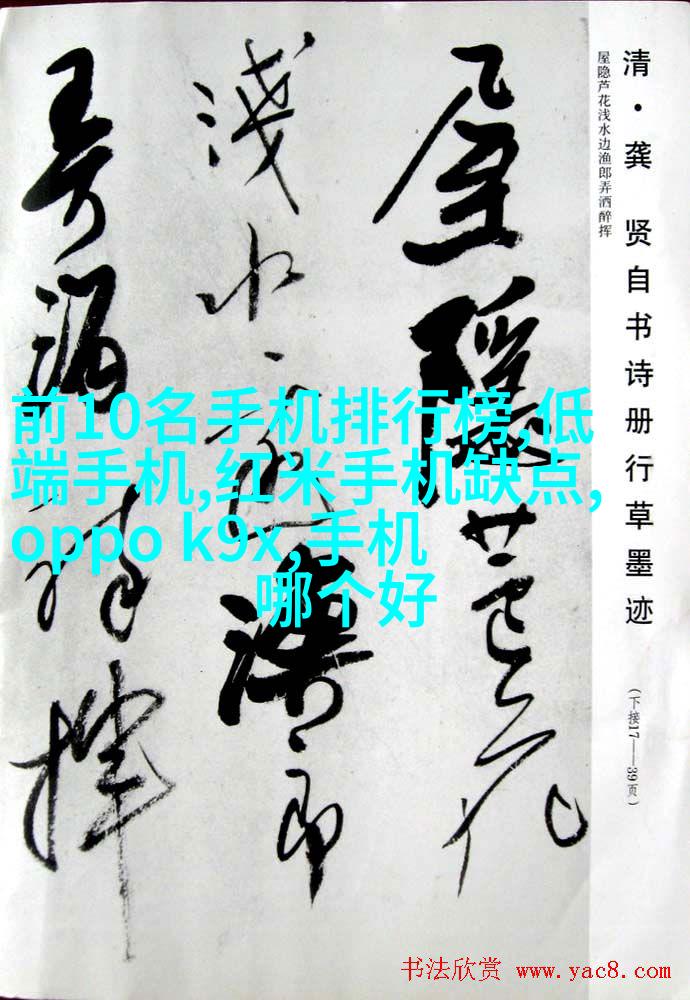 清·龚 贤自书诗册行草墨迹
屋隐芦花浅水边渔郎弄洒醉挥
(下接17——39页)
屋隱蘆花
淺水邊漁郎
弄酒醉揮
前10名手机排行榜,低
端手机,红米手机缺点,
oppo k9x,手机
哪个好
书法欣赏 www.yac8.com